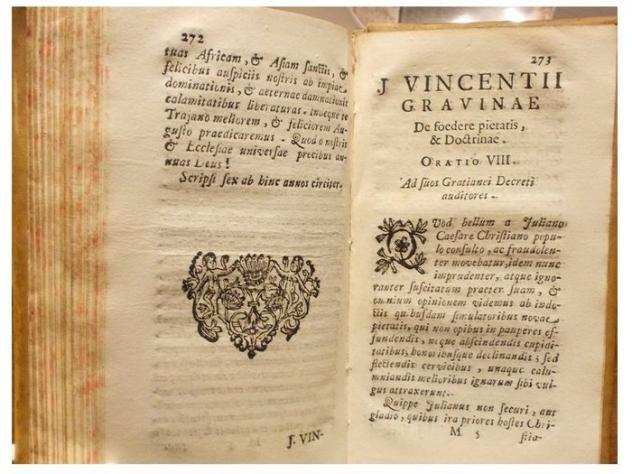 272
tuas Africam, & Asiam sanctis, &
felicibus auspiciis nostris ab impiae
dominationis, & aeternae damnationis
calamitatibus liberaturas. Inoeque te
Trajano meliorem, & feliciorem Au-
gusto praedicaremus. Quod o nostris
& Ecclesiae universae precibus an-
nuas Deus!
Scripsi sex ab hinc annos circiter.
J. VIN-
273
J VINCENTII
GRAVINAE
De foedere pietatis,
& Doctrinae.
ORATIO VIII.
Ad suos Gratianei Decreti
auditores.
QVod bellum a Juliano
Caesare Christiano popu-
lo consulto, ac fraudolen-
ter movebatur, idem nunc
imprudenter, atque igno-
ranter suscitatum praeter suam, &
omnium opinionem videmus ab indo-
ctis quibusdam simulatoribus novae
pietatis, qui non opibus in pauperes ef-
fundendis, neque abscindendis cupidi-
tatibus, honoribusque declinandis; sed
flectendis cervicibus, unaque calu-
mniandis melioribus ignarum sibi vul-
gus attraxerunt.
Quippe Julianus non securi, aut
gladio, quibus ira priores hostes Chri-
M 5
stia-